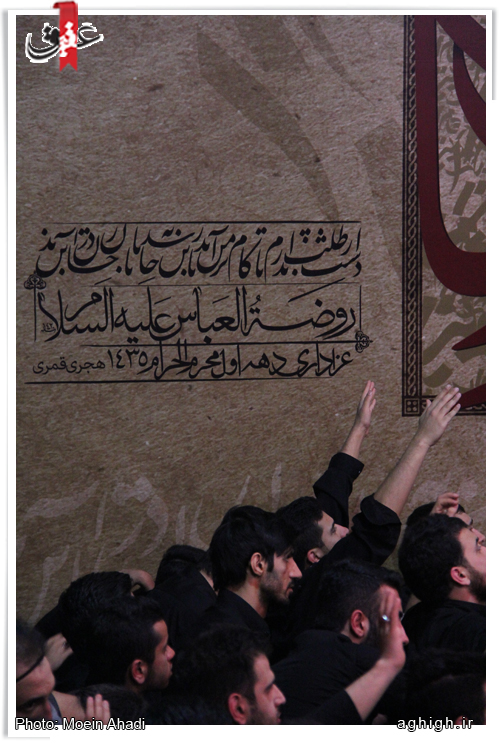 عقیق
دست از طلب ندارم تا کام من برآید یا تن رسد به جانان یا جان ز تن درآید
روضة العباس علیه السلام
عزاداری دهه اول محرم الحرام ۱۴۳۵ هجری قمری
Photo: Moein Ahadi
aghigh.ir